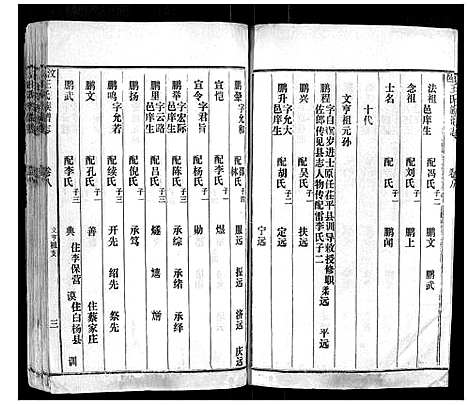 王氏族谱志 卷八
法祖 邑庠生 配冯氏 子二 鹏文 鹏武
念祖 配刘氏 子一 鹏闻
士名 配氏 子一 鹏
十代
文亨祖元孙
鹏程 字自 岁进士原任茌平县训导敕授修职
佐郎传见县志人物传配雷李氏子二 柔远 平远
鹏兴 配吴氏 子一 扶远
鹏升 字允大 邑庠生 配胡氏 子二 定远
宁远
鹏 字允和 配 孙氏 服远 振远 济远 庆远
宣恺 配李氏 子一 煜
宣令 字君旨 配杨氏
鹏举 字宏际 邑庠生 配孙氏 承绽 承绪 承绎
鹏里 字云路 邑庠生 配吕氏 燧
配倪氏 子一 承笃
鹏鸣 字允若 配续氏 子三 开先 绍先 祭先
鹏文 配孔氏 子一 善 住蔡家庄
鹏武 配李氏 子三 典 住李保营 谟 住白杨县 训
汶上王氏族谱志 卷八 文亨祖支 三